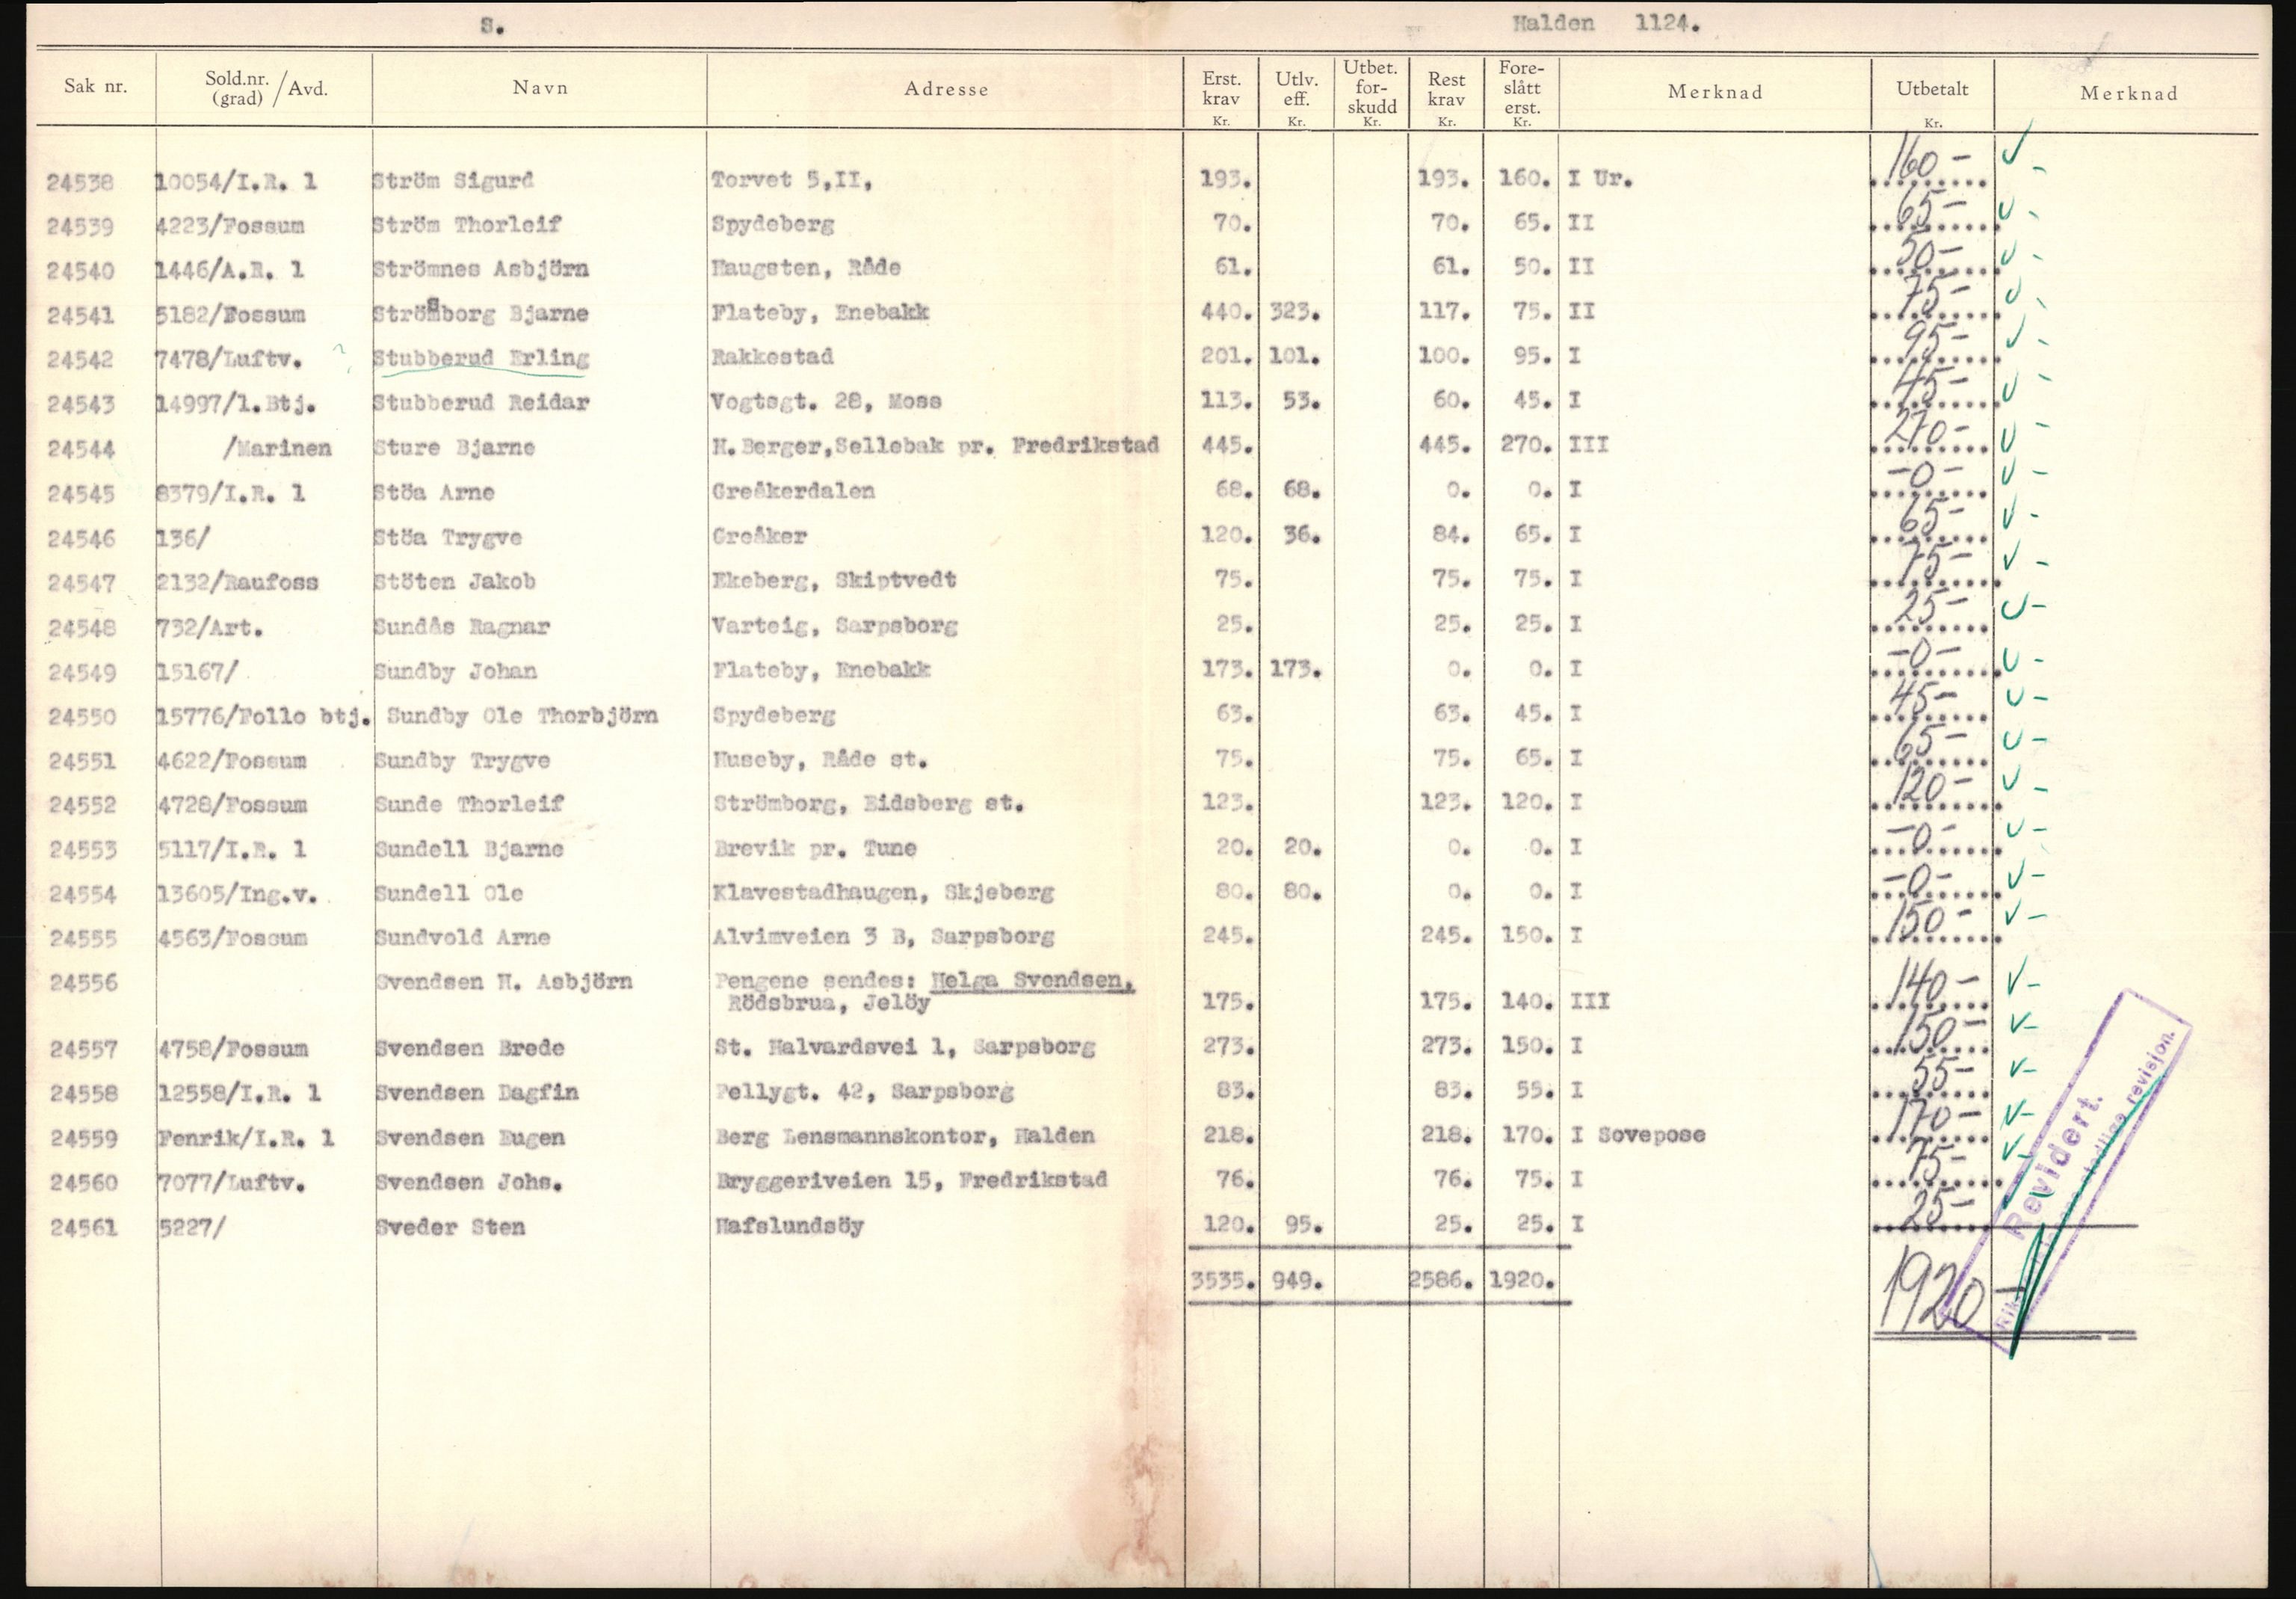 S. Halden 1124.
Sak nr. Sold.nr. (grad) / Avd. Navn Adresse Erst. krav Kr. Utlv. eff. Kr. Utbet. for- skudd Kr. Rest krav Kr. Fore- slått erst. Kr. Merknad Utbetalt Kr. Merknad
24538 10054/I.R. 1 Ström Sigurd Torvet 5,II, 193. 193. 160. I Ur. 160-
24539 4223/Fossum Ström Thorleif Spydeberg 70. 70. 65. II 65-
24540 1446/A.R. 1 Strömnes Asbjörn Haugsten, Råde 61. 61. 50. II 50-
24541 5182/Fossum Strömsborg Bjarne Flateby, Enebakk 440. 323. 117. 75. II 75-
24542 7478/Luftv. Stubberud Erling Rakkestad 201. 101. 100. 95. I 95-
24543 14997/1.Btj. Stubberud Reidar Vogtsgt. 28, Moss 113. 53. 60. 45. I 45-
24544 /Marinen Sture Bjarne H.Berger,Sellebak pr. Fredrikstad 445. 445. 270. III 270-
24545 8379/I.R. 1 Stöa Arne Greåkerdalen 68. 68. 0. 0. I -0-
24546 136/ Stöa Trygve Greåker 120. 36. 84. 65. I 65-
24547 2132/Raufoss Stöten Jakob Ekeberg, Skiptvedt 75. 75. 75. I 75-
24548 732/Art. Sundås Ragnar Varteig, Sarpsborg 25. 25. 25. I 25-
24549 15167/ Sundby Johan Flateby, Enebakk 173. 173. 0. 0. I -0-
24550 15776/Follo btj. Sundby Ole Thorbjörn Spydeberg 63. 63. 45. I 45-
24551 4622/Fossum Sundby Trygve Huseby, Råde st. 75. 75. 65. I 65-
24552 4728/Fossum Sunde Thorleif Strömborg, Eidsberg st. 123. 123. 120. I 120-
24553 5117/I.R. 1 Sundell Bjarne Brevik pr. Tune 20. 20. 0. 0. I -0-
24554 13605/Ing.v. Sundell Ole Klavestadhaugen, Skjeberg 80. 80. 0. 0. I -0-
24555 4563/Fossum Sundvold Arne Alvimveien 3 B, Sarpsborg 245. 245. 150. I 150-
24556 Svendsen H. Asbjörn Pengene sendes: Helga Svendsen,
Rödsbrua, Jelöy 175. 175. 140. III 140-
24557 4758/Fossum Svendsen Brede St. Halvardsvei 1, Sarpsborg 273. 273. 150. I 150-
24558 12558/I.R. 1 Svendsen Dagfin Pellygt. 42, Sarpsborg 83. 83. 55. I 55-
24559 Fenrik/I.R. 1 Svendsen Eugen Berg Lensmannskontor, Halden 218. 218. 170. I Sovepose 170-
24560 7077/Luftv. Svendsen Johs. Bryggeriveien 15, Fredrikstad 76. 76. 75. I 75-
24561 5227/ Sveder Sten Hafslundsöy 120. 95. 25. 25. I 25-
3535. 949. 2586. 1920. 1920-
Revidert.
revisjon.